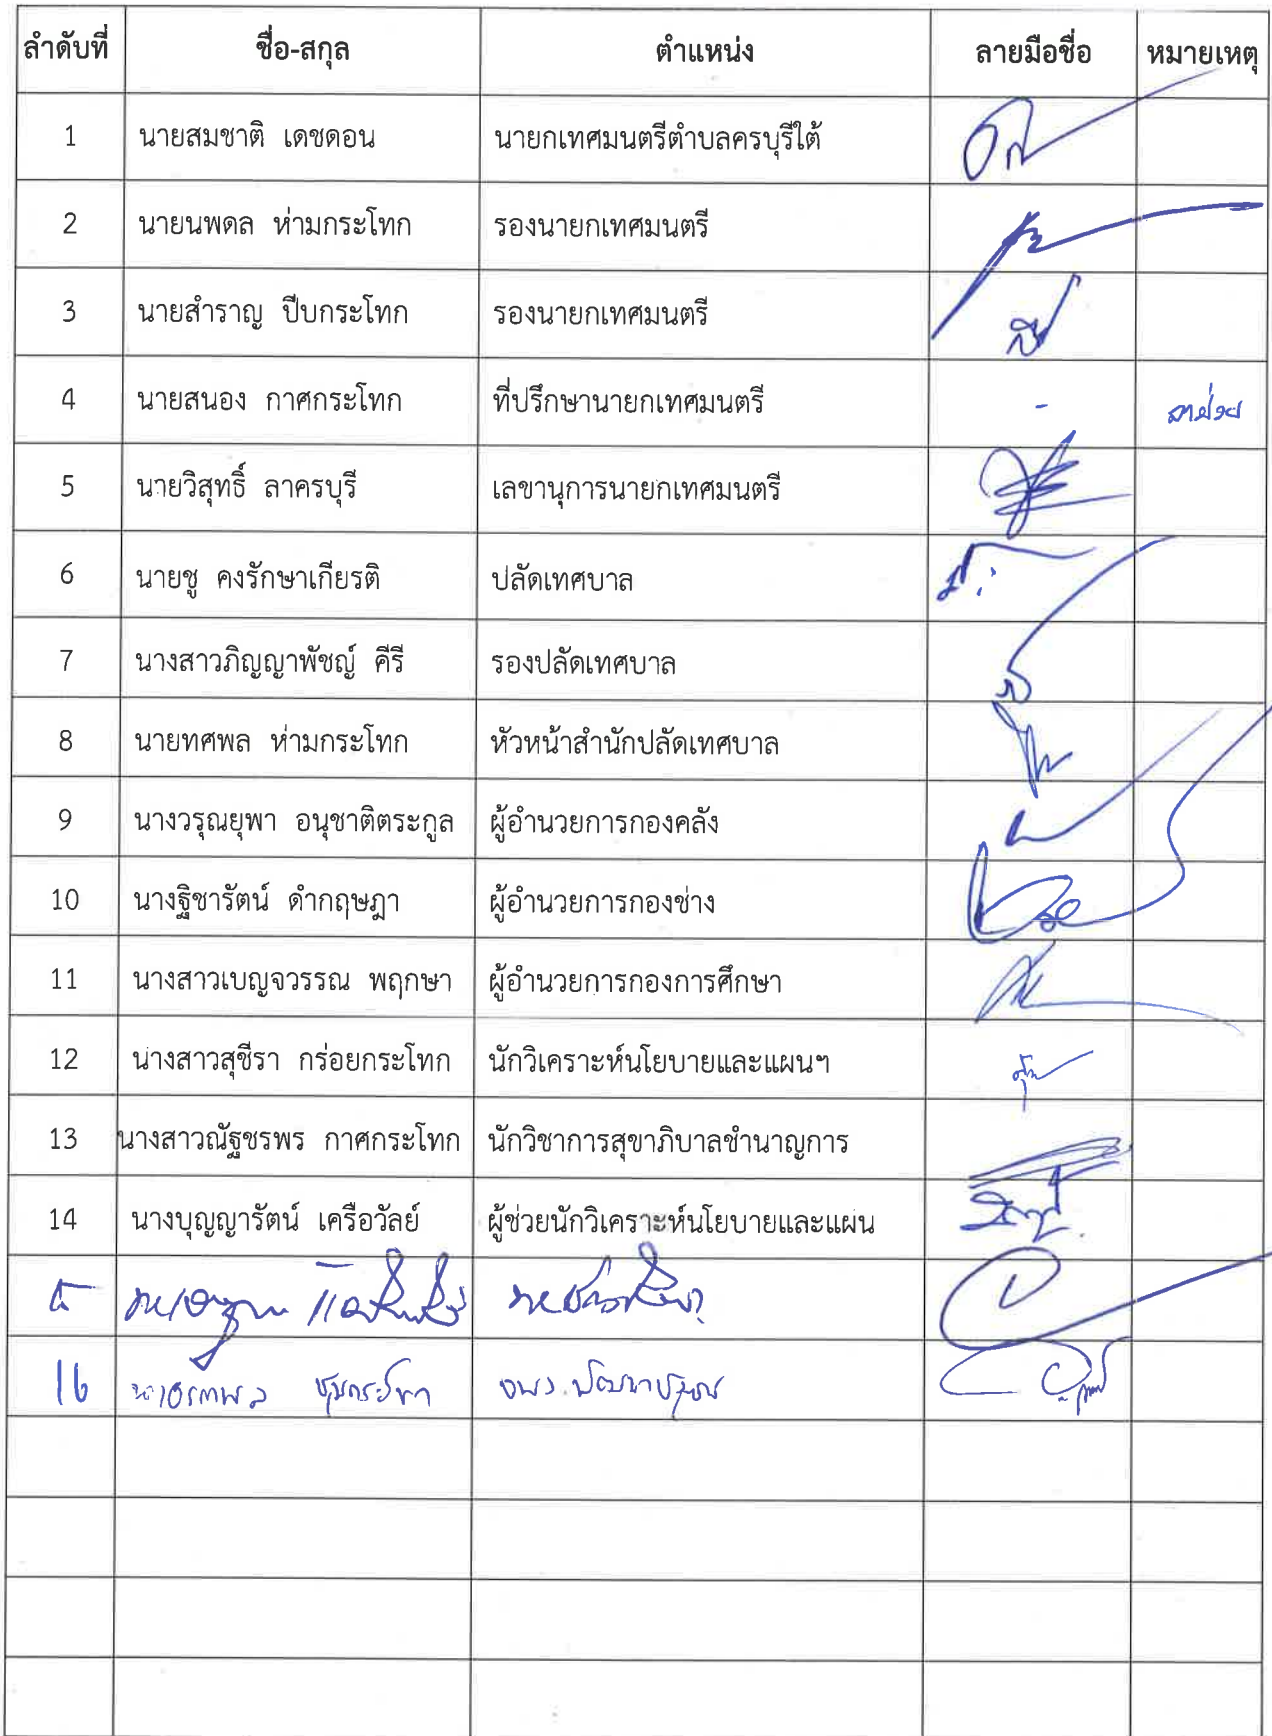 ลำดับที่ ชื่อ-สกุล ตำแหน่ง ลายมือชื่อ หมายเหตุ
1 นายสมชาติ เดชดอน นายกเทศมนตรีตำบลครบุรีใต้
2 นายนพดล ห่ามกระโทก รองนายกเทศมนตรี
3 นายสำราญ ปีบกระโทก รองนายกเทศมนตรี
4 นายสนอง กาศกระโทก ที่ปรึกษานายกเทศมนตรี - ลาป่วย
5 นายวิสุทธิ์ ลาครบุรี เลขานุการนายกเทศมนตรี
6 นายชู คงรักษาเกียรติ ปลัดเทศบาล
7 นางสาวภิญญาพัชญ์ คีรี รองปลัดเทศบาล
8 นายทศพล ห่ามกระโทก หัวหน้าสำนักปลัดเทศบาล
9 นางวรุณยุพา อนุชาติตระกูล ผู้อำนวยการกองคลัง
10 นางฐิชารัตน์ ดำกฤษฎา ผู้อำนวยการกองช่าง
11 นางสาวเบญจวรรณ พฤกษา ผู้อำนวยการกองการศึกษา
12 นางสาวสุชีรา กร่อยกระโทก นักวิเคราะห์นโยบายและแผนฯ
13 นางสาวณัฐชรพร กาศกระโทก นักวิชาการสุขาภิบาลชำนาญการ
14 นางบุญญารัตน์ เครือวัลย์ ผู้ช่วยนักวิเคราะห์นโยบายและแผน
16 จพง.พัฒนาชุมชน